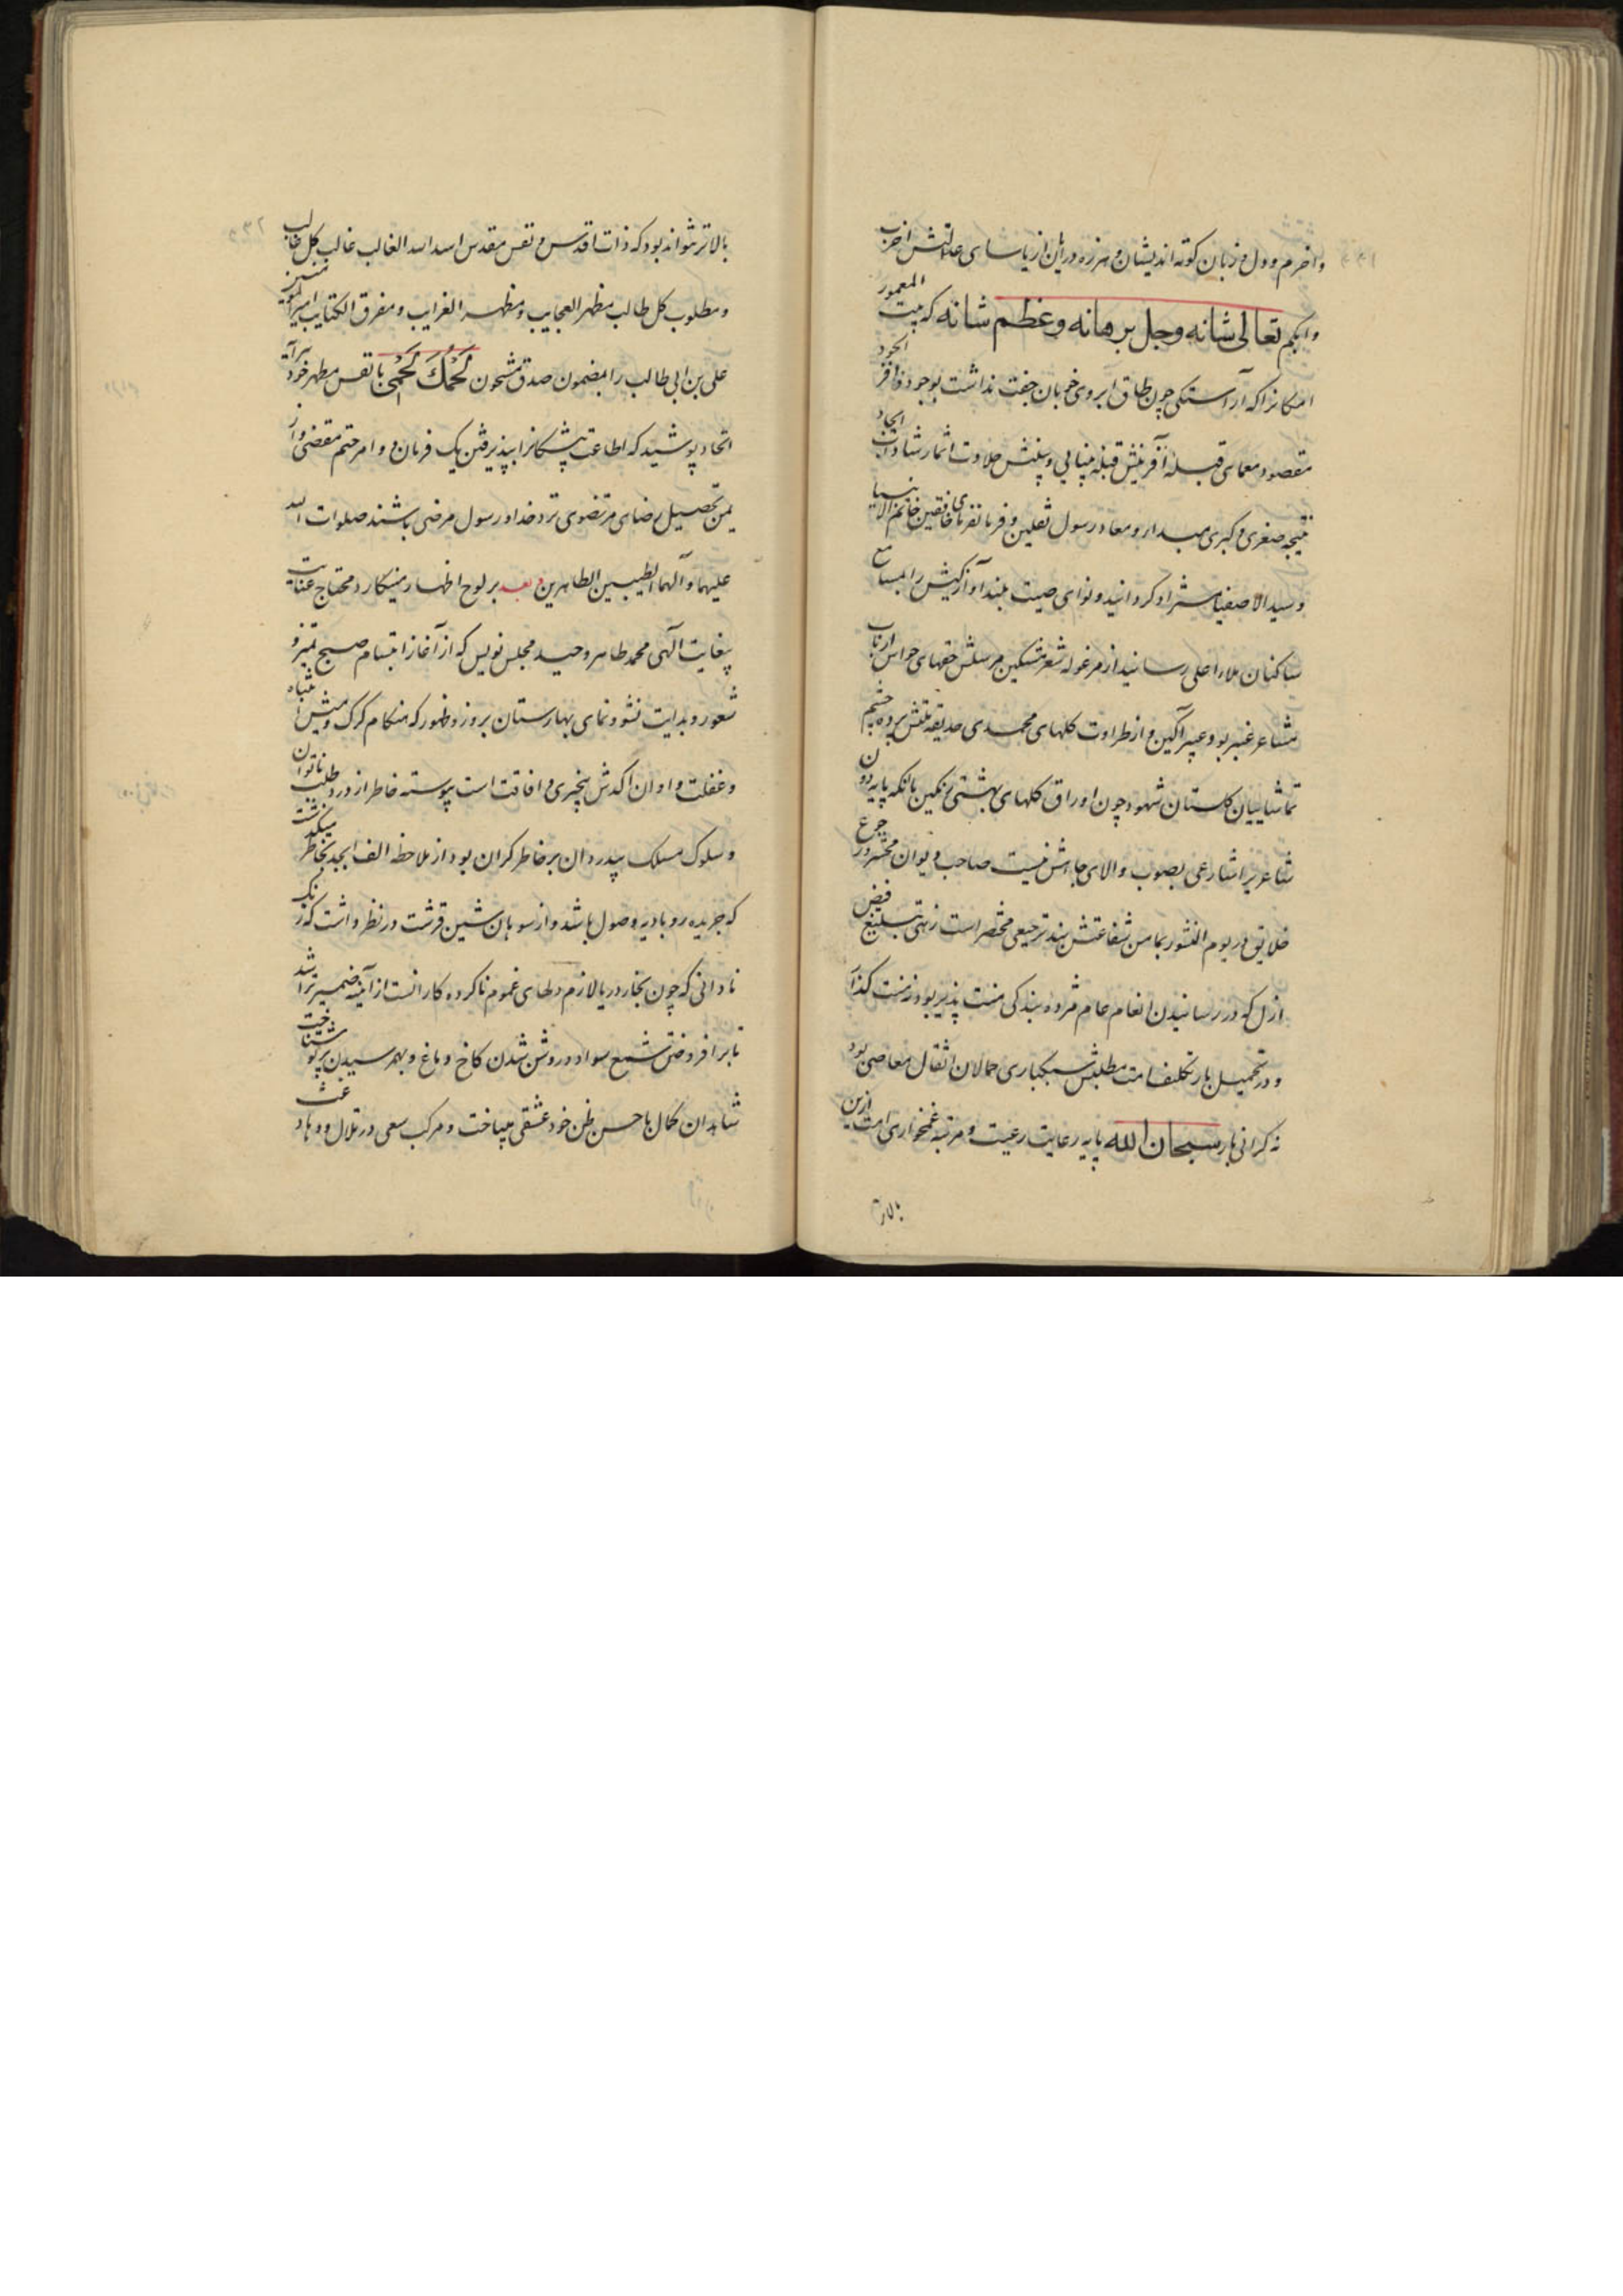 و اخرم و دل و زبان کوته اندیشان و هرزه درایان از یاسای عدالتش اخرب
و ابکم تعالی شانه و جل برهانه و عظم شانه که بیت المعمور
امکانرا که آراستگی چون طاق ابروی خوبان جفت نداشت بوجود وافر الجود
مقصود معمای قبله آفرینش قبله بینایی و بینش حلاوت اثمار شاداب ایجاد
نتیجه صغری و کبری مبدا و معاد رسول ثقلین و فرمانفرمای خافقین خاتم الانبیا
و سید الاصفیاش گردانید و نوای صیت بلند آوازگیش را بمسامع
ساکنان ملاء اعلی رسانید از مرغوله شعر مشکین مرسلش حقهای حواس ارباب
مشاعر عنبر بو و عبیر آگین و از طراوت گلهای محمدی حدیقه ملتش پرده چشم
تماشاییان گلستان شهود چون اوراق گلهای بهشتی رنگین بآنکه پایه دون
شاعریرا شارعی بصوب والای جاهش نیست صاحب دیوان محشر و در جوع
خلایق در یوم النشور بمامن شفاعتش بند ترجیعی مختصر است زهی تبلیغ فیض
ازل که در رسانیدن انعام عام مژده بندگی منت پذیر بود نه منت گذار
و در تحمیل بار تکلیف امت مطلبش سبکباری حمالان اثقال معاصی بود
نه گرانی بار سبحان الله پایه رعایت رعیت و مرتبه غمخواری امت ازین
بالاتر
بالاتر نتواند بود که ذات اقدس و نفس مقدس اسد الله الغالب غالب کل غالب
و مطلوب کل طالب مظهر العجایب و مظهر الغرایب و مفرق الکتایب امیر المومنین
علی بن ابی طالب را بمضمون صدق مشحون لَحْمُكَ لَحْمِی با نفس مطهر خود
اتحاد پوشید که اطاعت پیشگانرا بپذیرفتن یک فرمان دو امر حتم مقضی و از
یمن تحصیل رضای مرتضوی نزد خدا و رسول مرضی باشند صلوات الله
علیهما و آلهما الطیبین الطاهرین و بعد بر لوح اظهار مینگارد محتاج عنایت
بیغایت آلهی محمد طاهر وحید مجلس نویس که از آغاز ابتسام صبح تمیز و
شعور و بدایت نشو و نمای بهارستان بروز و ظهور که هنگام گرگ و میش اشتباه
و غفلت و اوان اکدش بیخبری و افاقت است پیوسته خاطر از درد طلب ناتوان
و سلوک مسلک بیدردان بر خاطر گران بود از ملاحظه الف ابجد بخاطر میگذشت
که جریده رو بادیه وصول باشد و از سوهان شین قرشت در نظر داشت که زنگ
نادانی که چون بخار دریا لازم دلهای غموم ناکرده کار انست از آینه ضمیر تراشد
تا برافروختن شمع سواد و روشن شدن کاخ دماغ و بهم رسیدن پرتو شناخت
شاهدان کمال با حسن ظن خود عشقی میباخت و مرکب سعی در تلال و وهاد